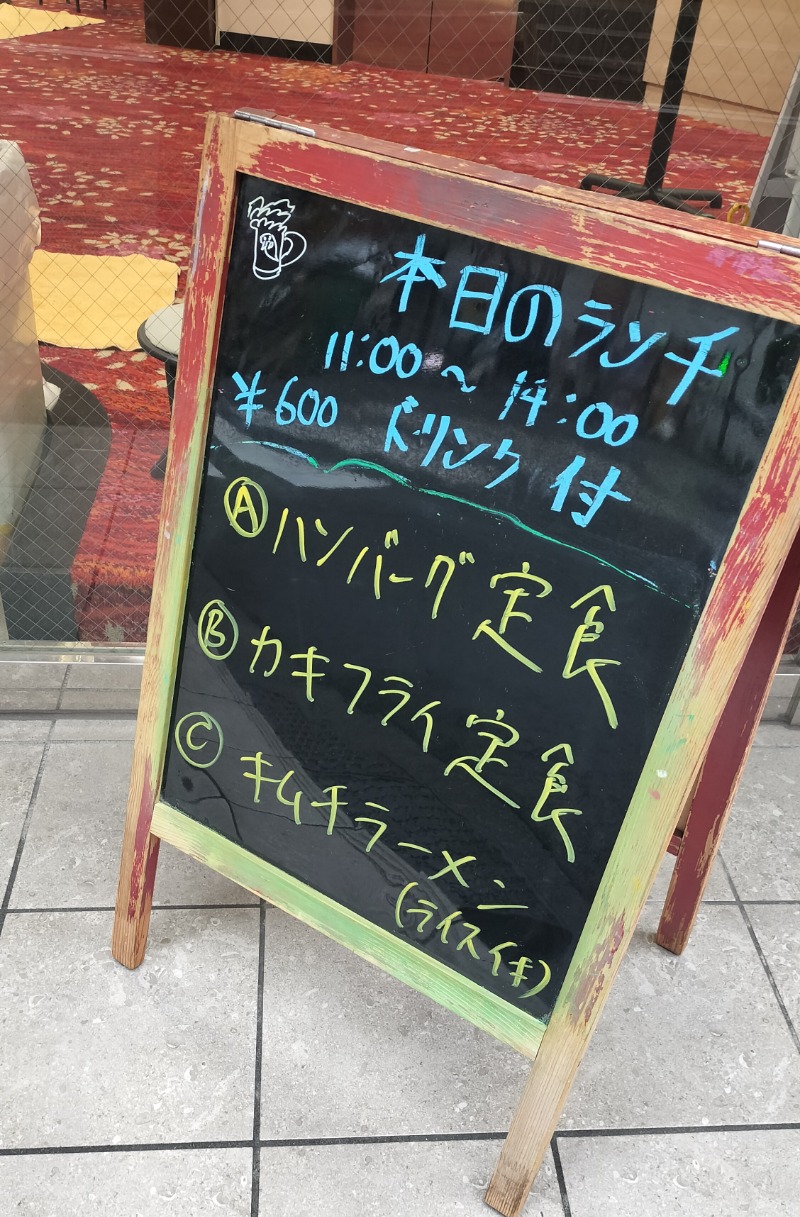 本日のランチ
11:00〜14:00
¥600 ドリンク付
Ⓐハンバーグ定食
Ⓑカキフライ定食
Ⓒキムチラーメン
(ライス付)